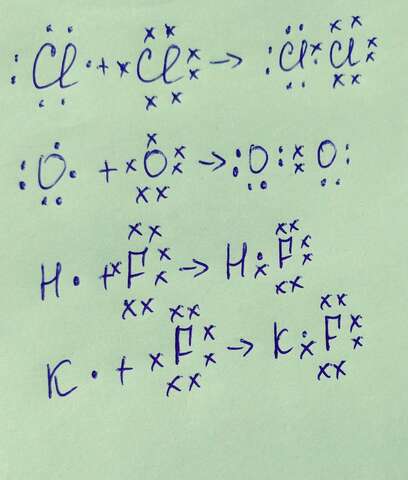 :Cl· + ×Cl → :Cl×·Cl
:O· + ×O → :O::O:
H· + ×F → H·×F
K· + ×F → K·×F